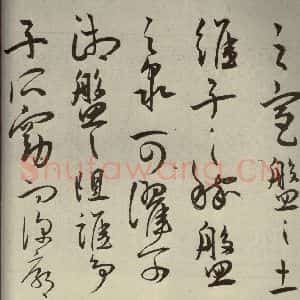 之宫盤之土
維子之稼盤
之泉可濯可
湘盤之阻誰争
子所窈而深廓
Shufawang.CN